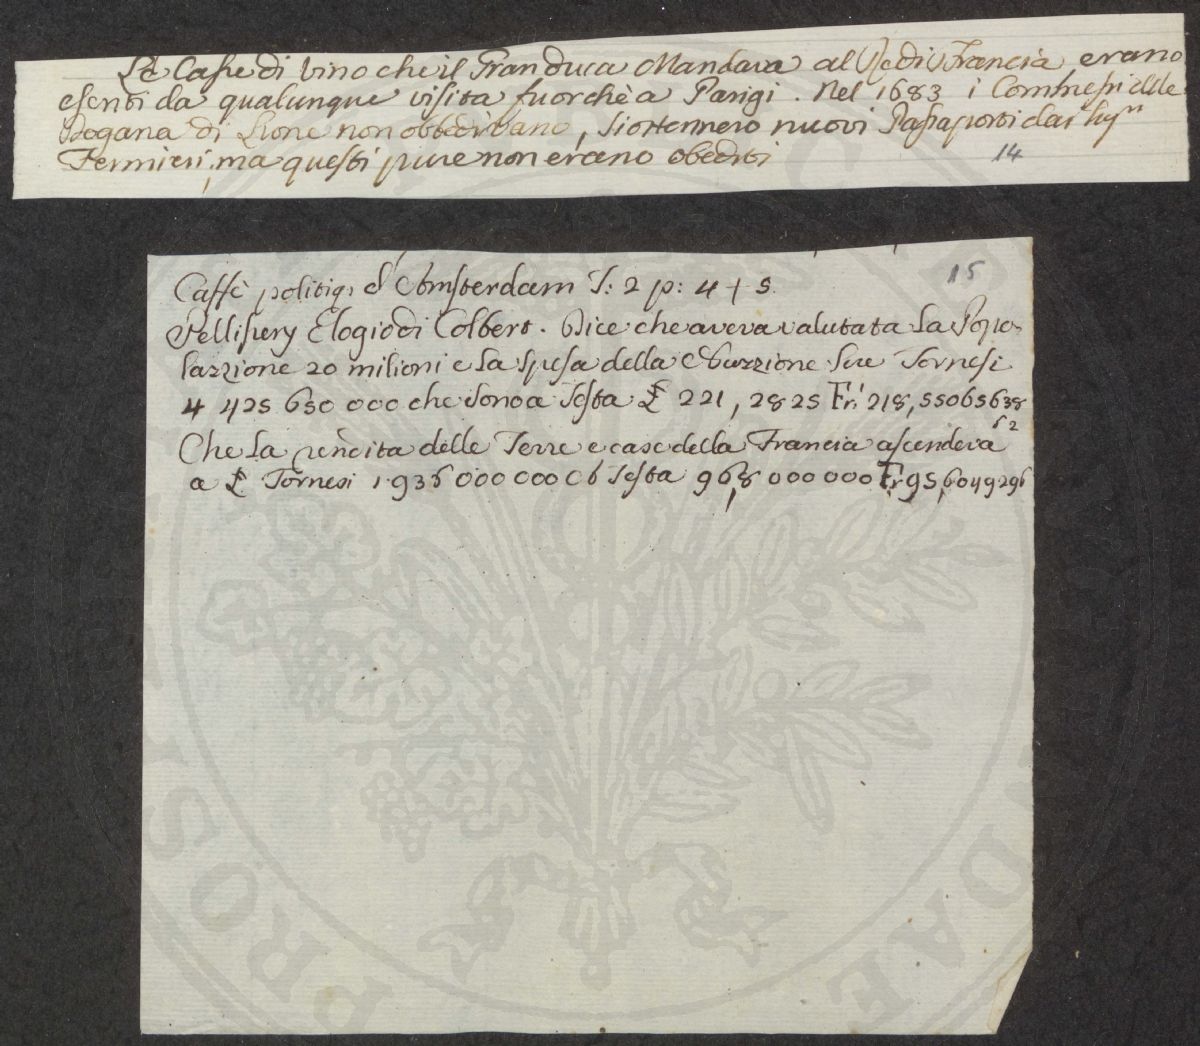 Le Casse di vino che il Granduca Mandava al Re di Francia erano
esenti da qualunque visita fuorchè a Parigi. Nel 1683 i Commessi delle
Dogana di Lione non obbedivano, si ottennero nuovi Passaporti dai
Fermieri, ma questi pure non erano obediti
14
15
Caffè politiq. d'Amsterdam T: 2 p: 4 + 5.
Pellissery Elogio di Colbert. Dice che aveva valutata la Popo-
lazzione 20 milioni e la spesa della Lire Tornesi
4 425 650 000 che sono a Testa £ 221, 2825 Fr. 218, 55065638
52
Che la rendita delle Terre e case della Francia ascendeva
a £ Tornesi 1.936 000 000 Testa 96,8 000 000 Fr 95,6049296
PROS
DAE